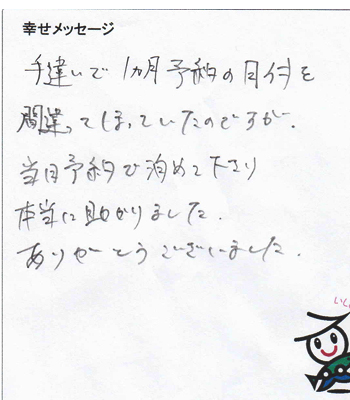 幸せメッセージ
手違いで1ヵ月予約の日付を
間違ってしまっていたのですが、
当日予約で泊めて下さり
本当に助かりました。
ありがとうございました。